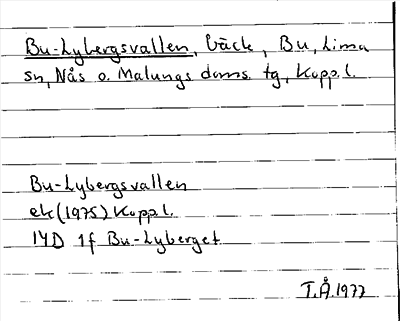 Bu-Lybergsvallen, bäck, Bu, Lima
sn, Nås o. Malungs doms. tg, Kopp. l.
Bu-Lybergsvallen
ek (1975) Kopp l.
14D 1f Bu-Lyberget
T.Å. 1977